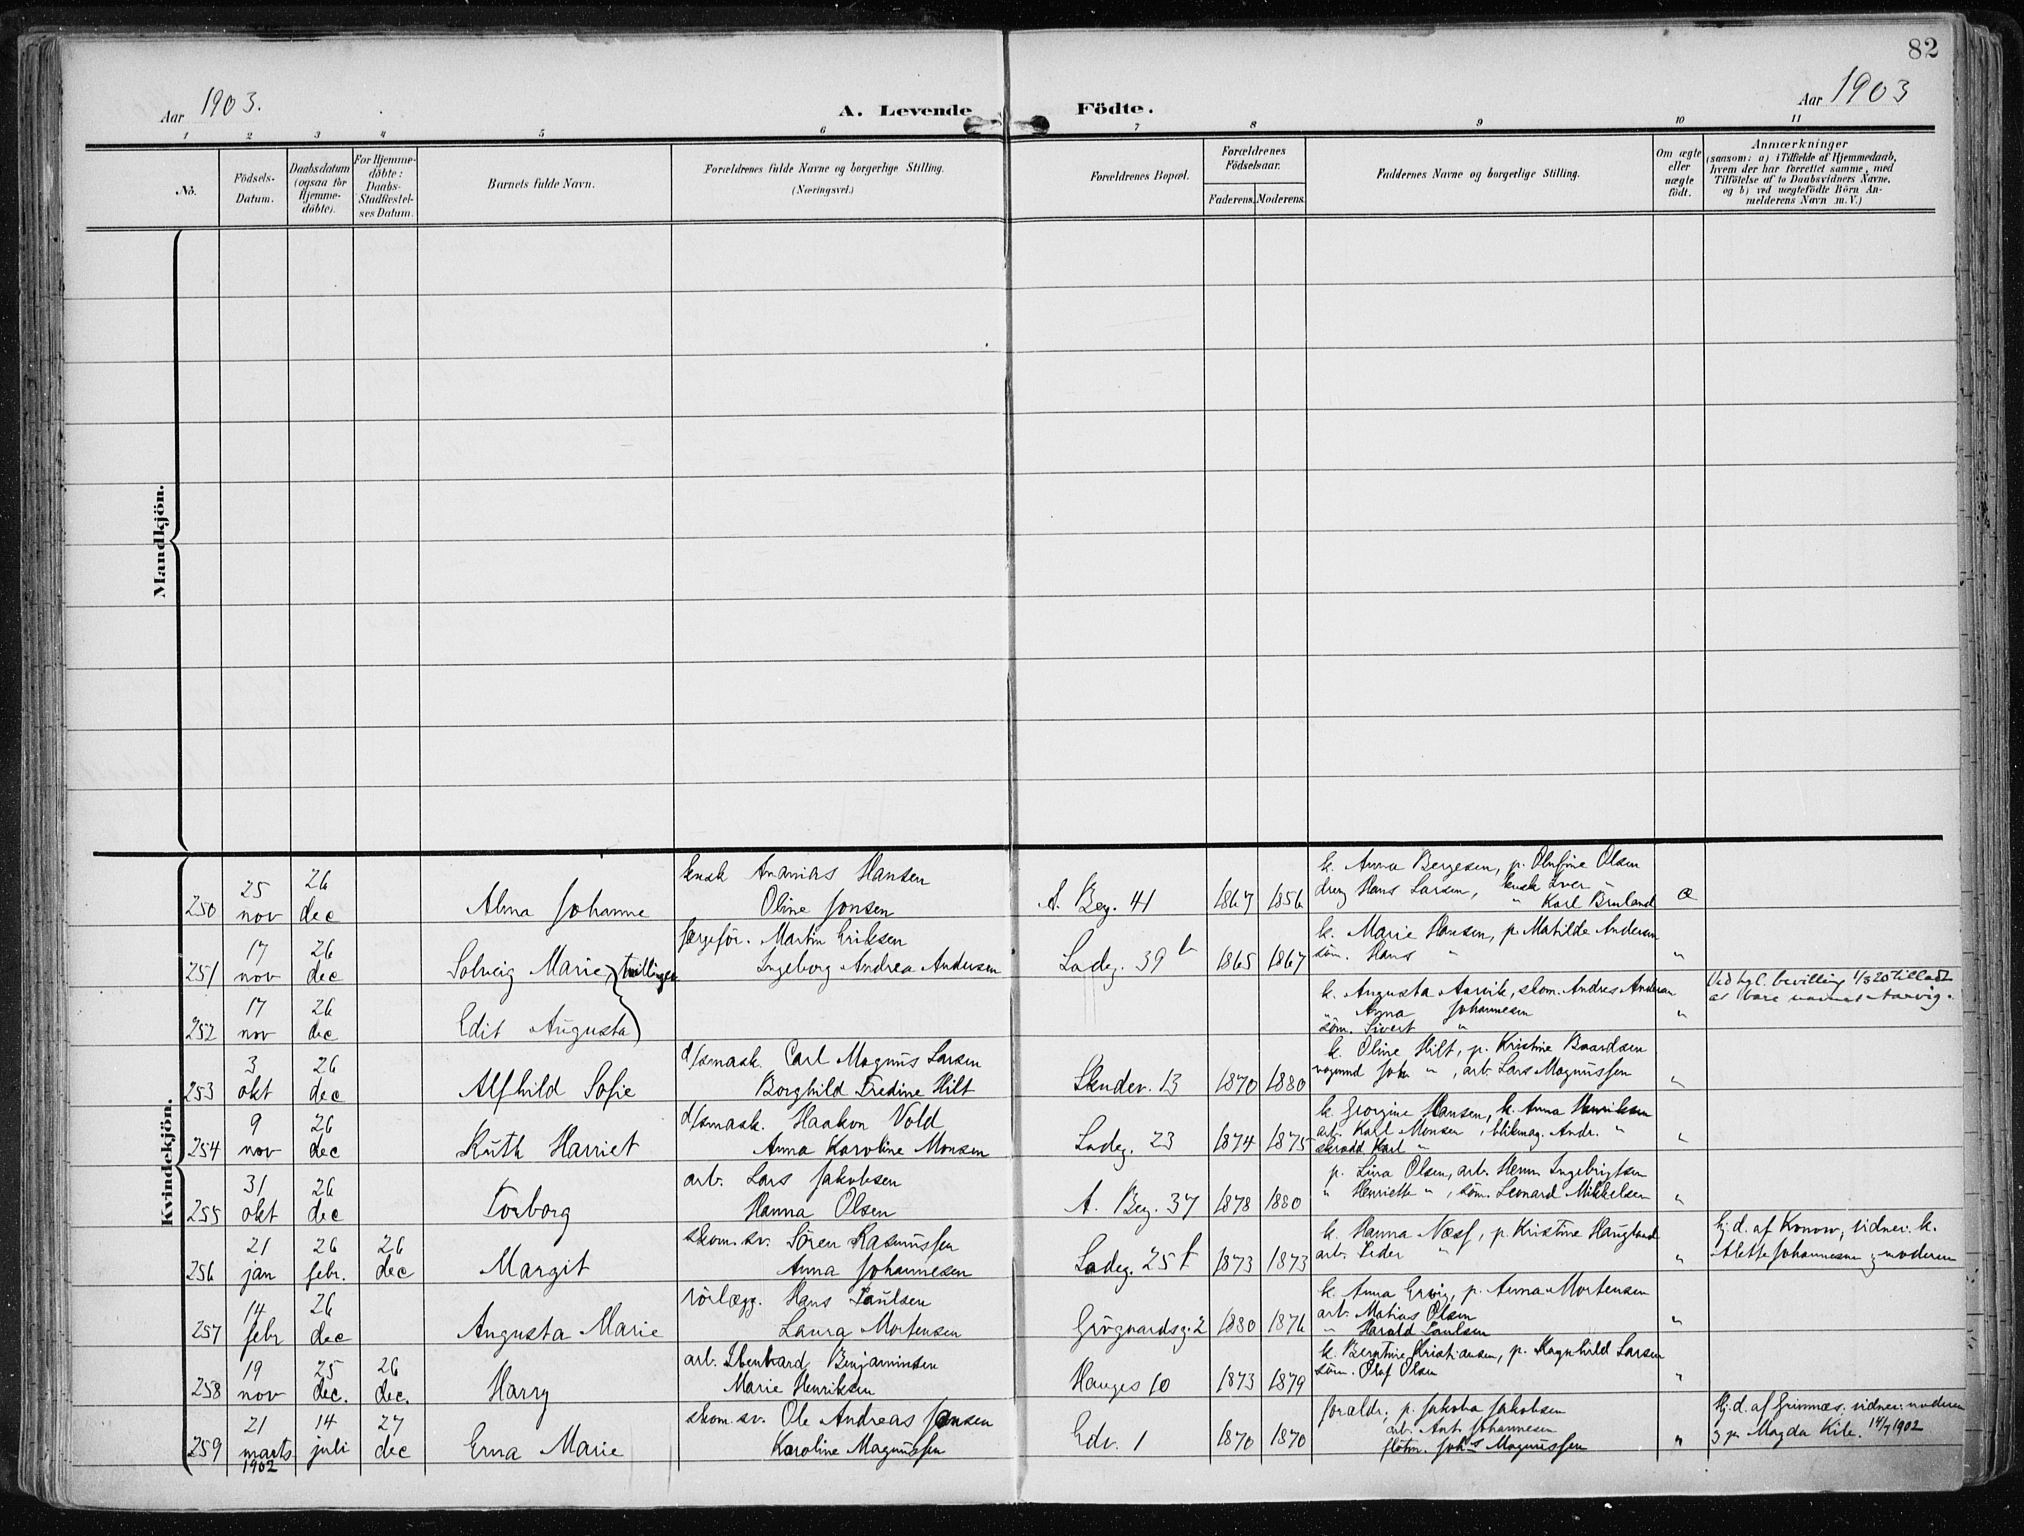 82
Aar 1903. A. Levende Födte. Aar 1903
1 2 3 4 5 6 7 8 9 10 11
No.
Födsels-
Datum.
Daabsdatum
(ogsaa for
Hjemme-
døbte).
For Hjemme-
døbte:
Daabs-
Stadfæstel-
ses Datum.
Barnets fulde Navn.
Forældrenes fulde Navne og borgerlige Stilling.
(Næringsvei.)
Forældrenes Bopæl.
Forældrenes
Födselsaar.
Faderens. Moderens.
Faddernes Navne og borgerlige Stilling.
Om ægte
eller
uægte
födt.
Anmærkninger
(saasom: a) i Tilfælde af Hjemmedaab,
hvem der har forrettet samme, med
Tilföielse af to Daabsvidners Navne,
og b) ved uægtefödte Börn An-
melderens Navn m. V.)
Mandkjön.
Kvindekjön.
250 25 nov 26 dec Alma Johanne
kusk Ananias Hansen
Oline Jonsen
A. Beg. 41 1867 1856
k. Anna Bergesen, p. Olufine Olsen
dreng Hans Larsen, kusk Iver "
" Karl Bruland
æ
251 17 nov 26 dec Solveig Marie } tvillinger
færgefør. Martin Eriksen
Ingeborg Andrea Andersen
Ladeg. 39 b 1865 1867
k. Marie Hansen, p. Matilde Andersen
söm. Hans "
"
252 17 nov 26 dec Edit Augusta
k. Augusta Aarvik, skom. Andres Andersen
" Anna Johannesen
söm. Sivert "
"
Ved kgl. bevilling 1/3 20 tilladt
at bære navnet Aarvig.
253 3 okt 26 dec Alfhild Sofie
d/smask. Carl Magnus Larsen
Borghild Fredine Hilt
Skudev. 13 1870 1880
k. Oline Hilt, p. Kristine Baardsen
vognmd Joh. ", arb. Lars Magnussen
"
254 9 nov 26 dec Ruth Harriet
d/smask. Haakon Vold
Anna Karoline Monsen
Ladeg. 23 1874 1875
k. Georgine Hansen, k. Anna Henriksen
arb. Karl Monsen, blikmag. Andr. "
skrædd Karl "
"
255 31 okt 26 dec Torborg
arb. Lars Jakobsen
Hanna Olsen
A. Beg. 37 1878 1880
p. Lina Olsen, arb. Henn Ingebrigtsen
" Henriette ", söm. Leonard Mikkelsen
"
256 21 jan 26 febr. 26 dec Margit
skom. sv. Sören Rasmussen
Anna Johannesen
Ladeg. 25 f 1873 1873
k. Hanna Næss, p. Kristine Haugland
arb. Peder "
"
Hj. d. af Konow, vidner: k.
Alette Johannesen og moderen
257 14 febr 26 dec Augusta Marie
rörlægg. Hans Paulsen
Laura Mortensen
Grögaardsg. 2 1880 1876
k. Anna Ervig, p. Anna Mortensen
arb. Matias Olsen
" Harald Paulsen
"
258 19 nov 25 dec. 26 dec. Harry
arb. Ebenhard Benjaminsen
Marie Henriksen
Hauges 10 1873 1879
k. Berntine Kristiansen, p. Ragnhild Larsen
söm. Olaf Olsen
"
259 21 marts 1902 14 juli 27 dec Erna Marie
skom. sv. Ole Andreas Jansen
Karoline Magnussen
Edv. 1 1870 1870
foræld., p. Jakoba Jakobsen
arb. Ant. Johannesen
flötm. Johs Magnussen
"
Hj. d. af Grimnæs, vidner: moderen
og p. Magda Kile. 14/7 1902